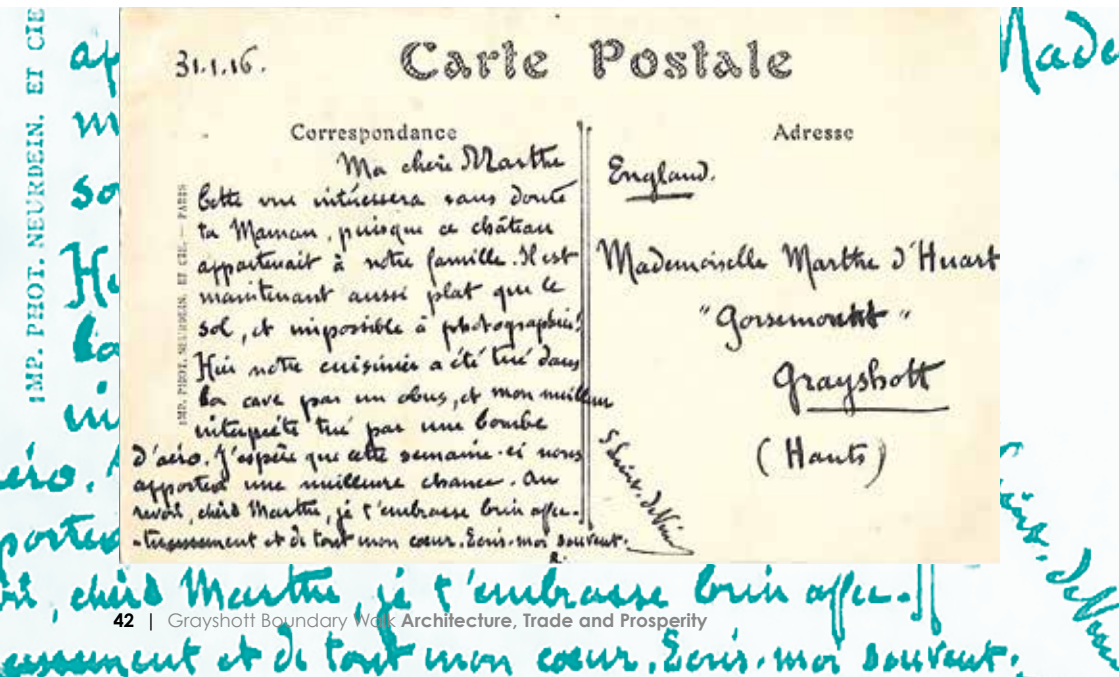 31.1.16.
Carte Postale
Correspondance
Ma chère Marthe
Cette vue intéressera sans doute
ta Maman, puisque ce château
appartenait à notre famille. Il est
maintenant aussi plat que le
sol, et impossible à photographier!
Hier notre cuisinier a été tué dans
la cave par un obus, et mon meilleur
interprète tué par une bombe
d'aéro. J'espère que cette semaine-ci nous
apportera une meilleure chance. Au
revoir, chère Marthe, je t'embrasse bien affec-
-tueusement et de tout mon coeur. Ecris-moi souvent.
R.
IMP. PHOT. NEURDEIN. ET CIE. — PARIS
Adresse
England.
Mademoiselle Marthe d'Huart
"Gorsemount"
Grayshott
(Hants)
IMP. PHOT. NEURDEIN. ET CIE
ap
m
so
He
la
in
Made
éro.
portera
chère Marthe, je t'embrasse bien affec-
et de tout mon coeur. Ecris-moi souvent.
42 | Grayshott Boundary Walk Architecture, Trade and Prosperity